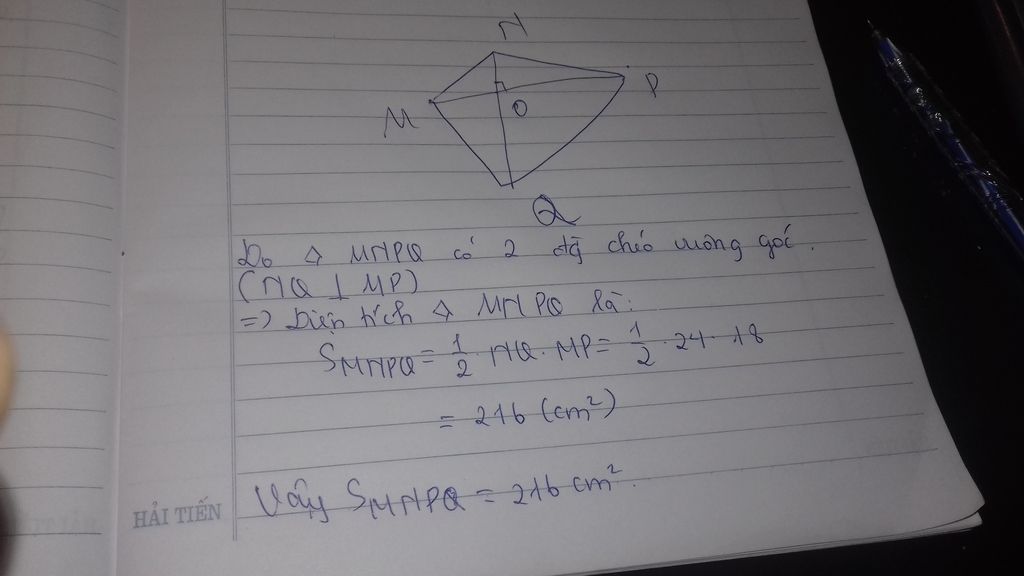 N
M
O
P
Q
Do ◊ MNPQ có 2 đg chéo vuông góc.
(NQ ⊥ MP)
=> Diện tích ◊ MNPQ là:
S_MNPQ = 1/2 . NQ . MP = 1/2 . 24 . 18
= 216 (cm²)
Vậy S_MNPQ = 216 cm².
HẢI TIẾN